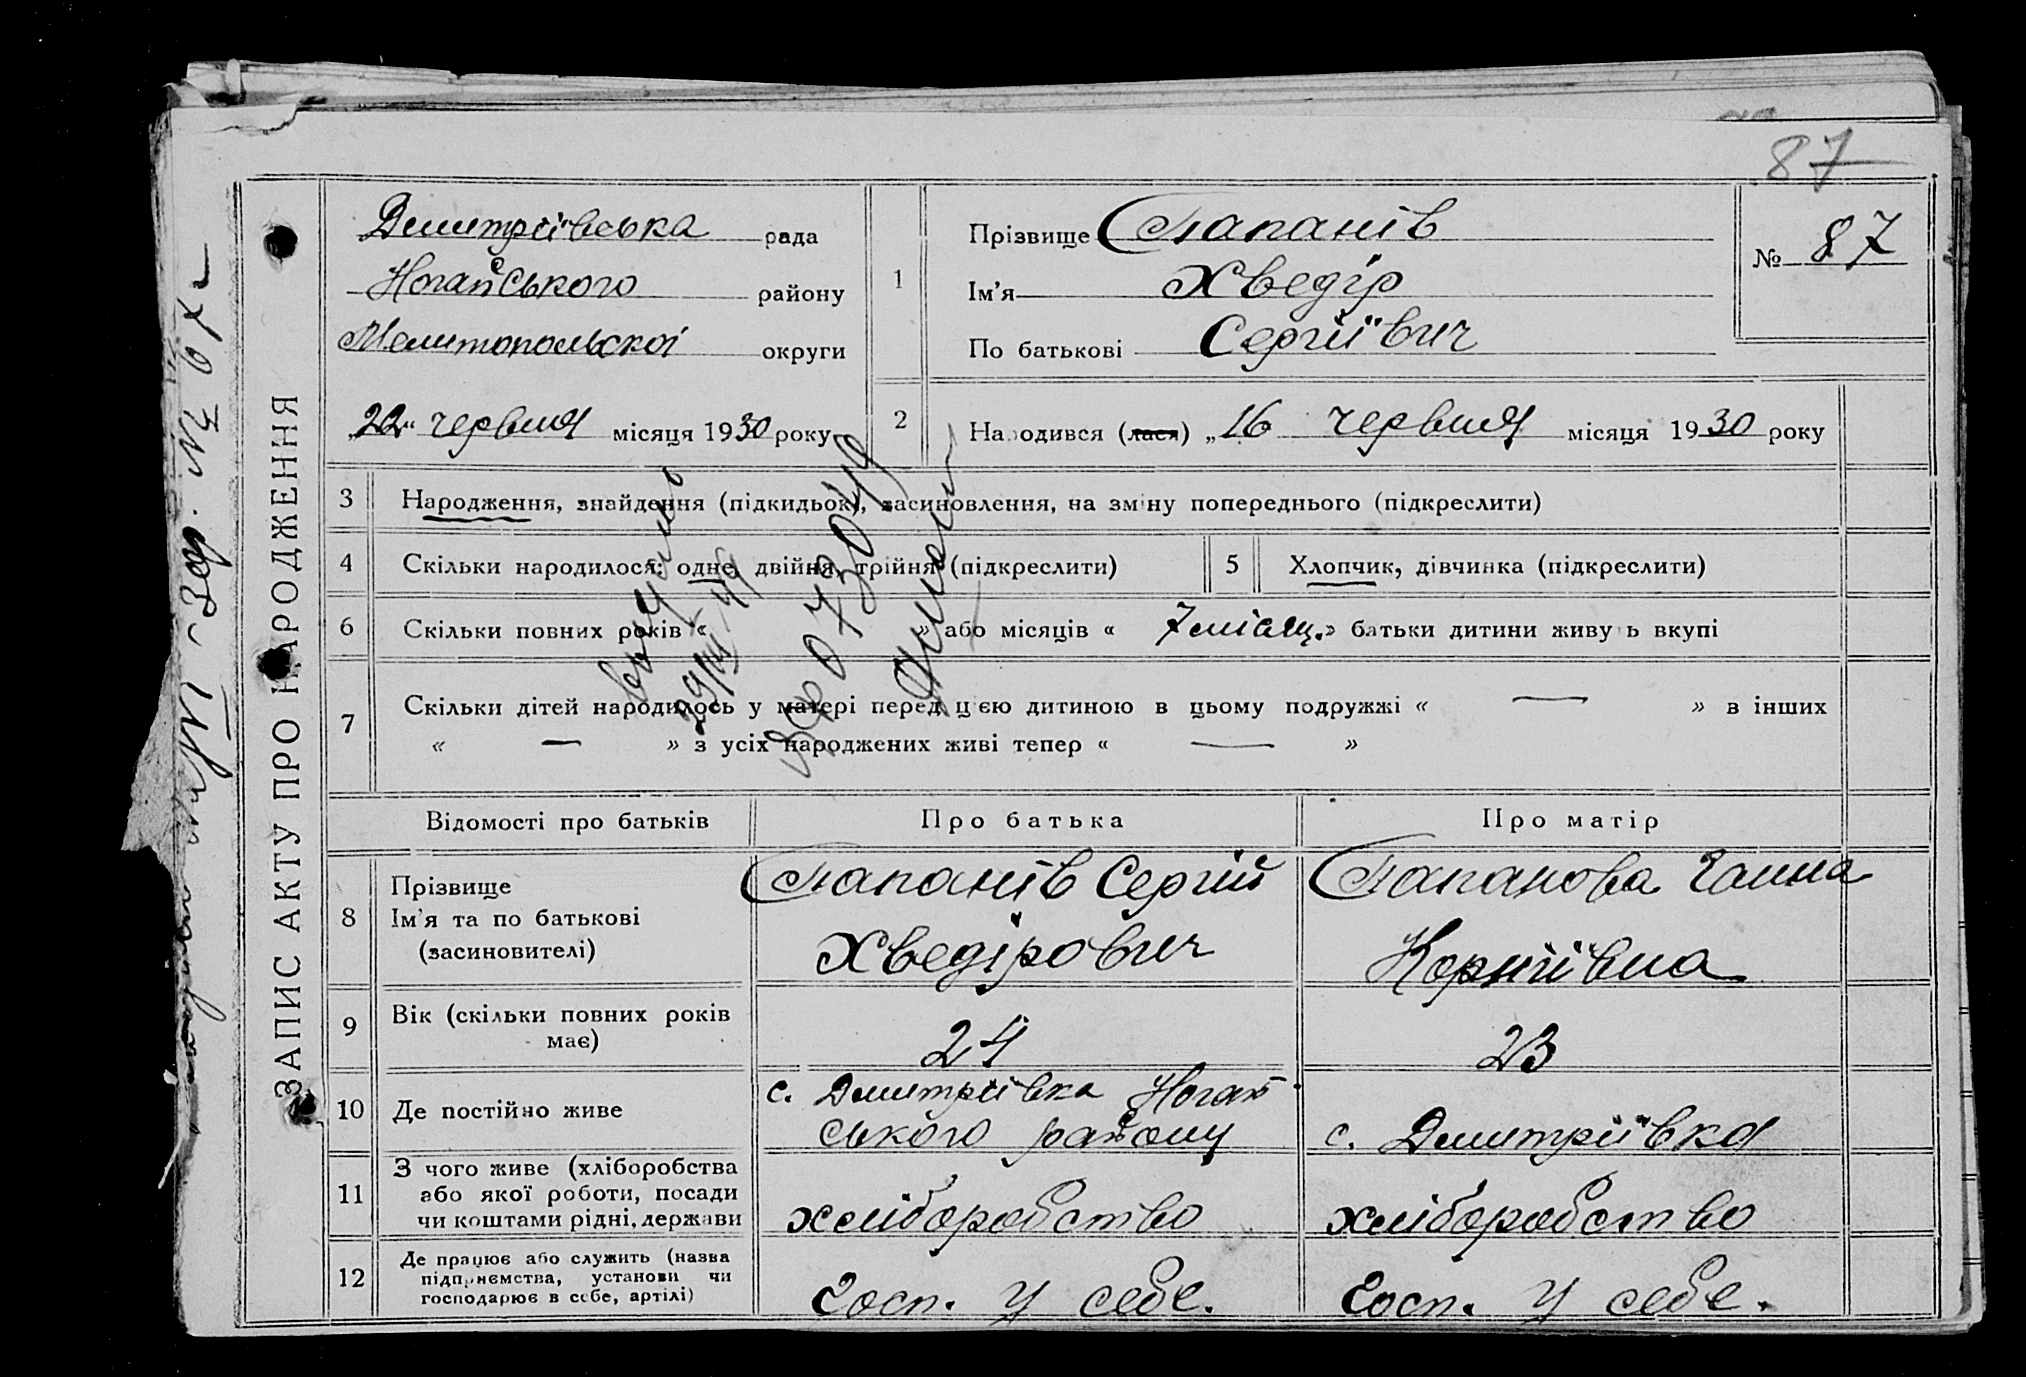 87
ЗАПИС АКТУ ПРО НАРОДЖЕННЯ
Дмитріївська рада
Ногайського району
Мелитопольскої округи
„22“ червня місяця 1930 року
1
Прізвище Папанів
Ім'я Хведір
По батькові Сергіївич
№ 87
2 Народився (лася) „16 червня місяця 1930 року
3 Народження, знайдення (підкидьок), засиновлення, на зміну попереднього (підкреслити)
4 Скільки народилося: одне, двійня, трійня (підкреслити) 5 Хлопчик, дівчинка (підкреслити)
6 Скільки повних років « » або місяців « 7 місяц. » батьки дитини живуть вкупі
7 Скільки дітей народилось у матері перед цією дитиною в цьому подружжі « — » в інших
« — » з усіх народжених живі тепер « — »
29/III-49
073049
Відомості про батьків Про батька Про матір
8 Прізвище
Ім'я та по батькові
(засиновителі)
Папанів Сергій
Хведірович
Папанова Ганна
Корніївна
9 Вік (скільки повних років
має)
24 23
10 Де постійно живе
с. Дмитріївка Ногай-
ського району
с. Дмитріївка
11 З чого живе (хліборобства
або якої роботи, посади
чи коштами рідні, держави
хліборобство хліборобство
12 Де працює або служить (назва
підприємства, установи чи
господарює в себе, артілі)
Госп. у себе. Госп. у себе.